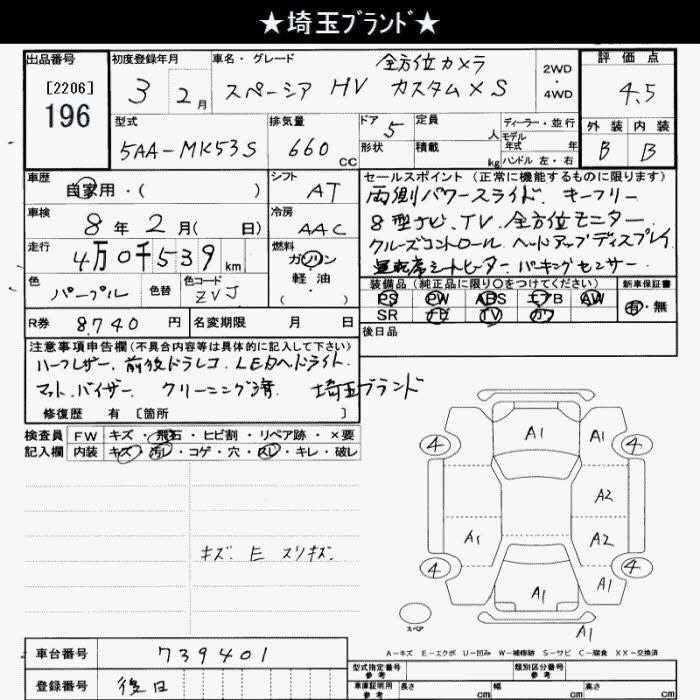 ★埼玉ブランド★
出品番号 初度登録年月 車名・グレード 全方位カメラ 2WD・4WD 評価点
[2206]
196
3 2月 スペーシア HV カスタムXS 4.5
型式 排気量 ドア 定員 人 ディーラー・並行 外装 内装
5AA-MK53S 660cc 5 形状 積載 kg モデル年式 年 ハンドル 左・右 B B
車歴 シフト セールスポイント (正常に機能するものに限ります)
自家用・( ) AT 両側パワースライド. キーフリー
車検 8年2月( 日) 冷房 AAC 8型ナビ、TV、全方位モニター
走行 4万0千539km 燃料 ガソリン・軽油・( ) クルーズコントロール ヘッドアップディスプレイ
運転席シートヒーター. パーキングセンサー.
色 パープル 色替 色コード ZVJ
装備品 (純正品に限り○をつけてください) 新車保証書
PS PW ABS エアB AW 有・無
SR ナビ TV カワ
R券 8,740円 名変期限 月 日 後日品
注意事項申告欄(不具合内容等は具体的に記入して下さい)
ハーフレザー. 前後ドラレコ. LEDヘッドライト.
マット. バイザー. クリーニング済. 埼玉ブランド
修復歴 有 [箇所 ]
検査員 FW キズ・飛石・ヒビ割・リペア跡・×要
記入欄 内装 キズ・汚レ・コゲ・穴・スレ・キレ・破レ
キズ. E スリキズ.
A1 A1
4 4
A2
A1 A2
4 4
A1 A1
スペア A1
A-キズ E-エクボ U-凹み W-補修跡 S-サビ C-腐食 XX-交換済
車台番号 739401
型式指定番号 参考 類別区分番号 参考
登録番号 後日
車庫証明用 参考 長さ cm 幅 cm 高さ cm